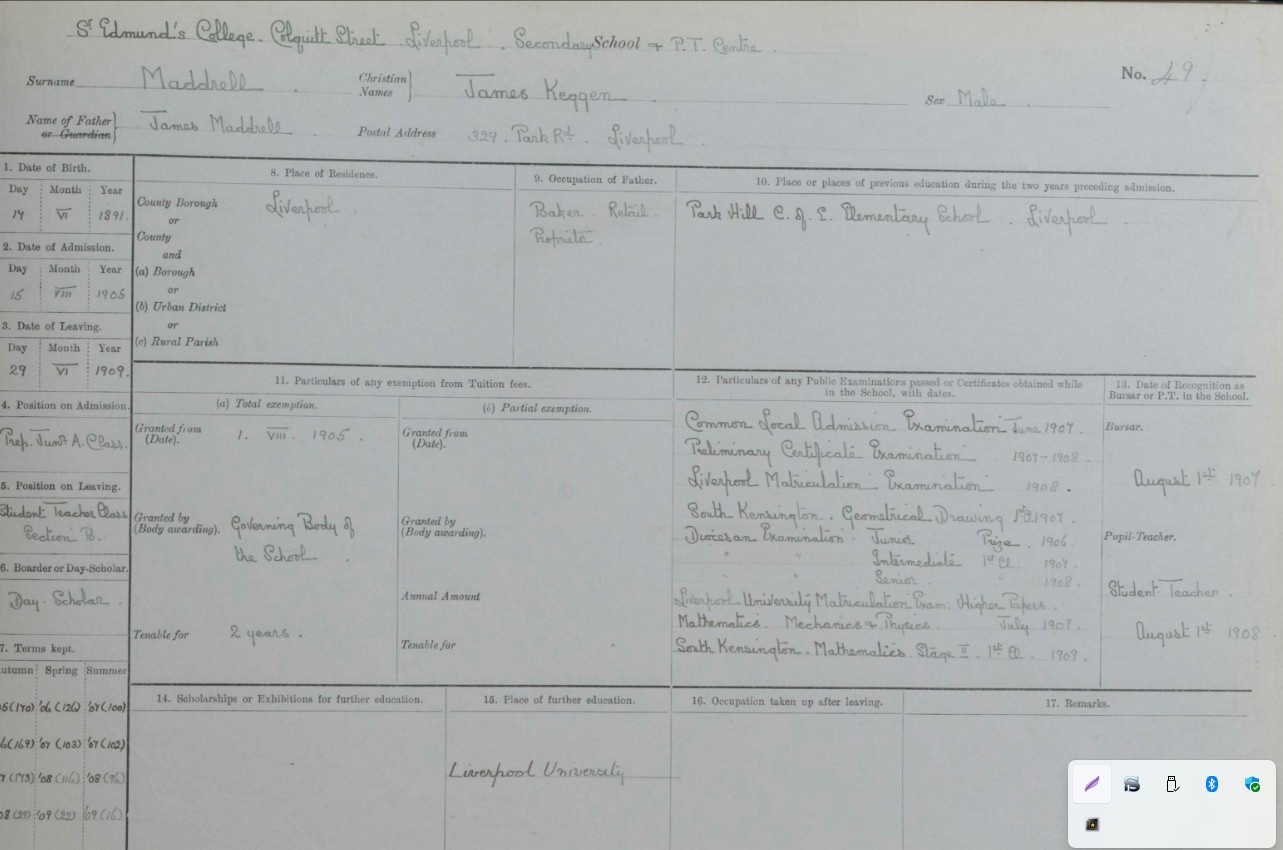 St Edmund's College. Colquitt Street. Liverpool. Secondary School & P.T. Centre.
No. 49.
Surname Maddrell. Christian Names James Keggen Sex Male.
Name of Father or Guardian James Maddrell. Postal Address 329. Park Rd. Liverpool.
1. Date of Birth.
Day Month Year
VI 1891.
2. Date of Admission.
Day Month Year
15 VIII 1905
3. Date of Leaving.
Day Month Year
29 VI 1909.
4. Position on Admission.
Prep. Junr A. Class.
5. Position on Leaving.
Student Teacher Class
Section B.
6. Boarder or Day-Scholar.
Day-Scholar.
7. Terms kept.
utumn Spring Summer
5(170) '06 (126) (100)
6(169) '07 (103) (102)
(173) '08 (116) '08 (96)
08 '09 (22) '09 (16)
8. Place of Residence.
County Borough Liverpool.
or
County
and
(a) Borough
or
(b) Urban District
or
(c) Rural Parish
9. Occupation of Father.
Baker Retail.
Proprietor.
10. Place or places of previous education during the two years preceding admission.
Park Hill C. of E. Elementary School. Liverpool.
11. Particulars of any exemption from Tuition fees.
(a) Total exemption.
Granted from (Date). 1. VIII. 1905.
Granted by (Body awarding). Governing Body of
the School.
Tenable for 2 years.
(b) Partial exemption.
Granted from (Date).
Granted by (Body awarding).
Annual Amount
Tenable for
12. Particulars of any Public Examinations passed or Certificates obtained while
in the School, with dates.
Common Local Admission Examination June 1907.
Preliminary Certificate Examination 1907-1908.
Liverpool Matriculation Examination 1908.
South Kensington. Geometrical Drawing 1907.
Diocesan Examination Junior Prize. 1906.
" " Intermediate 1st Cl. 1907.
" " Senior. " 1908.
Liverpool University Matriculation Exam: Higher Papers.
Mathematics. Mechanics & Physics. July 1909.
South Kensington. Mathematics. Stage II. 1st Cl. 1909.
13. Date of Recognition as
Bursar or P.T. in the School.
Bursar.
August 1st 1907
Pupil-Teacher.
Student-Teacher.
August 1st 1908
14. Scholarships or Exhibitions for further education.
15. Place of further education.
Liverpool University
16. Occupation taken up after leaving.
17. Remarks.